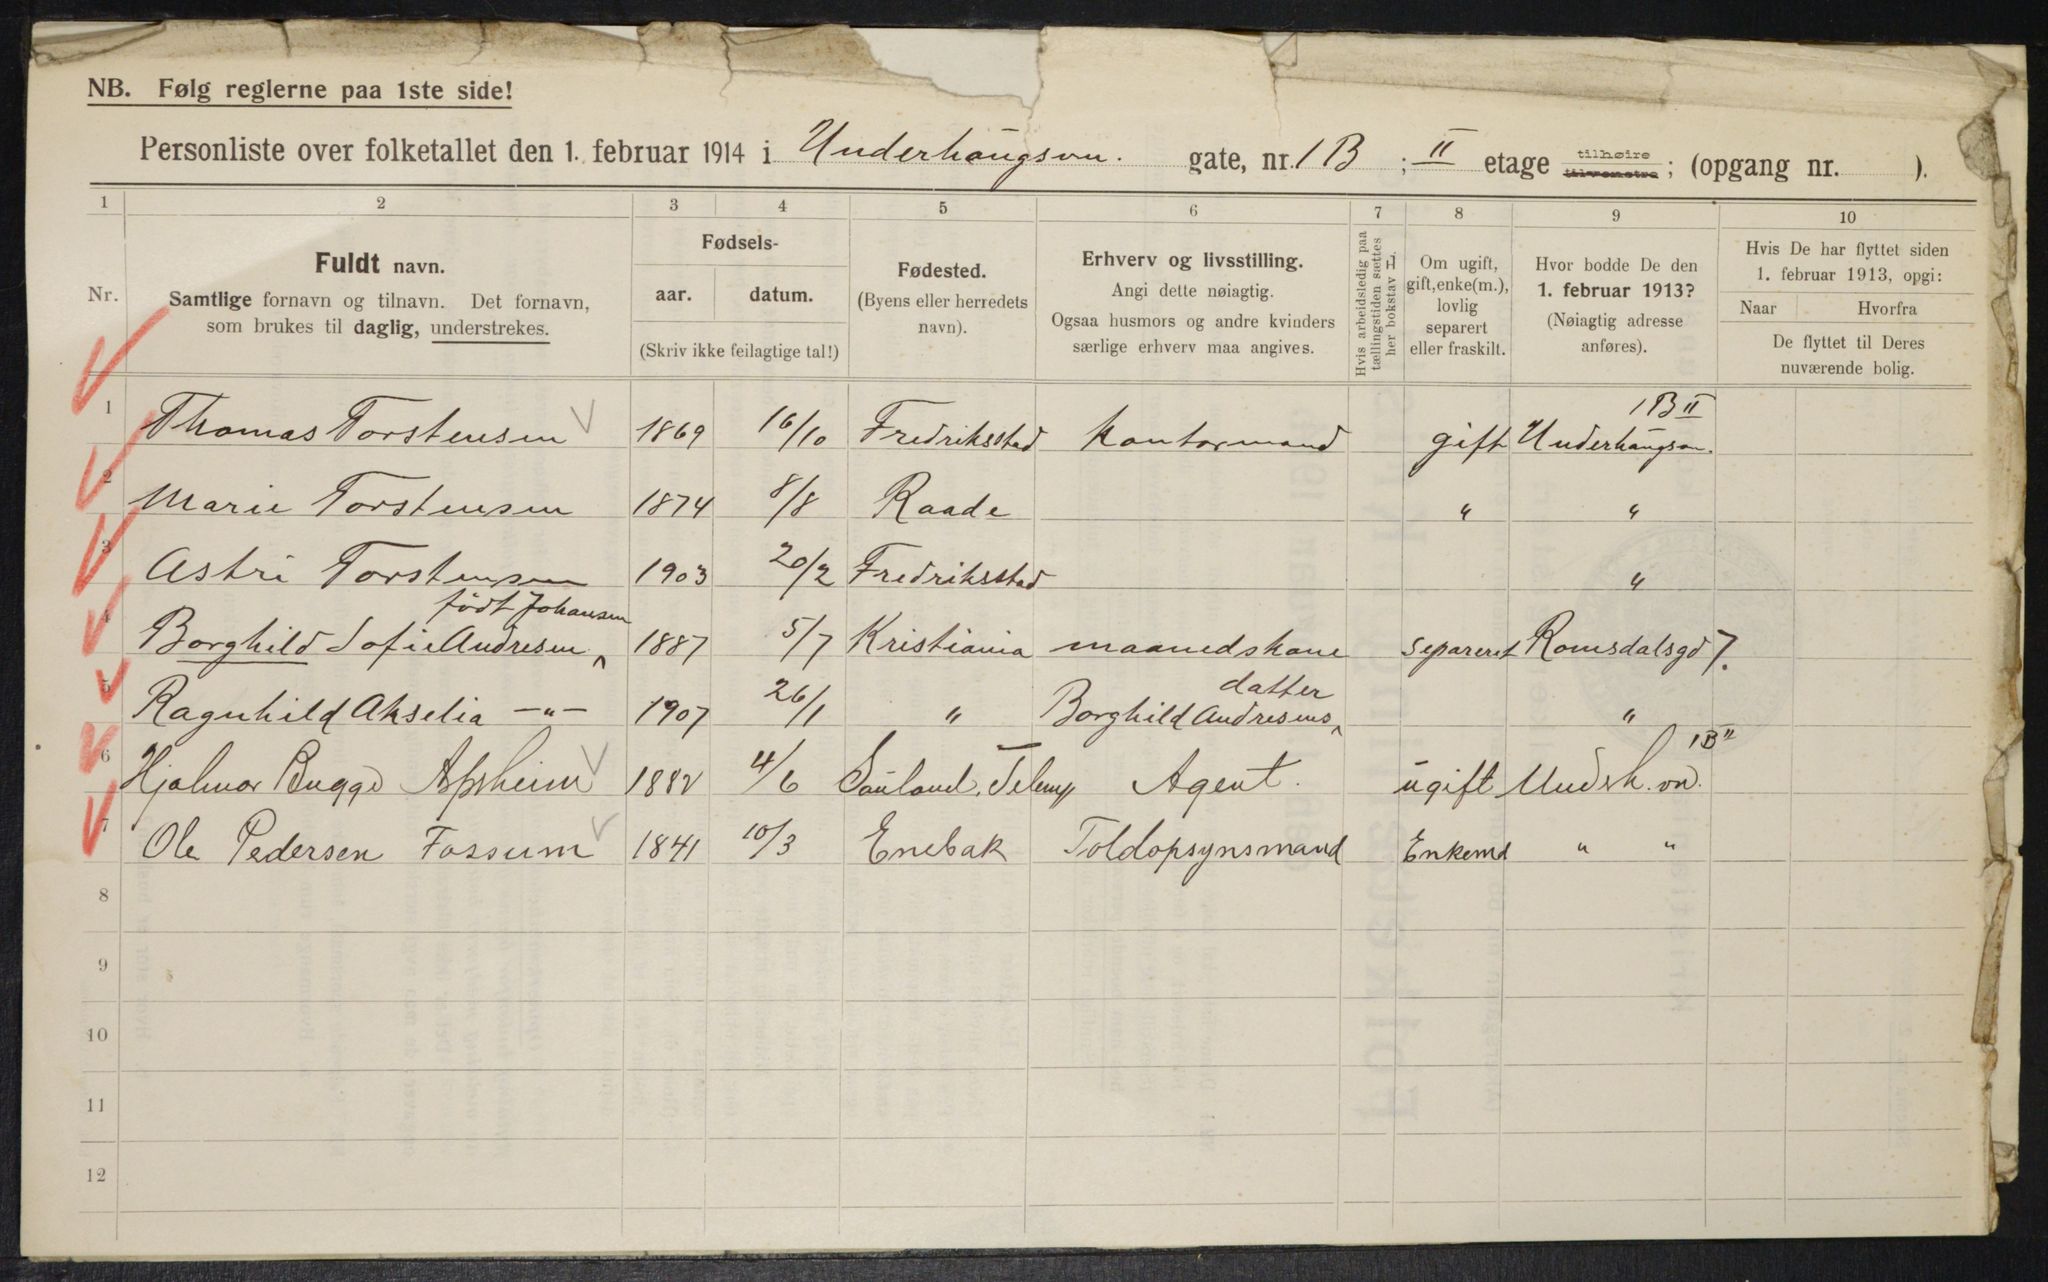 NB. Følg reglerne paa 1ste side!
Personliste over folketallet den 1. februar 1914 i Underhaugsvn. gate, nr. 1B ; II etage tilhøire tilvenstre ; (opgang nr. ).
1 2 3 4 5 6 7 8 9 10
Nr.
Fuldt navn.
Samtlige fornavn og tilnavn. Det fornavn,
som brukes til daglig, understrekes.
Fødsels-
aar. datum.
(Skriv ikke feilagtige tal!)
Fødested.
(Byens eller herredets
navn).
Erhverv og livsstilling.
Angi dette nøiagtig.
Ogsaa husmors og andre kvinders
særlige erhverv maa angives.
Hvis arbeidsledig paa
tællingstiden sættes
her bokstav L.
Om ugift,
gift, enke(m.),
lovlig
separert
eller fraskilt.
Hvor bodde De den
1. februar 1913?
(Nøiagtig adresse
anføres).
Hvis De har flyttet siden
1. februar 1913, opgi:
Naar Hvorfra
De flyttet til Deres
nuværende bolig.
1 Thomas Torstensen 1869 16/10 Fredriksstad Kontormand gift 1B II Underhaugsvn.
2 Marie Torstensen 1874 8/8 Raade " "
3 Astri Torstensen 1903 20/2 Fredriksstad "
født Johansen
4 Borghild Sofie Andresen 1887 5/7 Kristiania maanedskone separeret Romsdalsgd 7.
datter
5 Ragnhild Akselia -"- 1907 26/1 " Borghild Andresens "
1B II
6 Hjalmar Bugge Apsheim 1882 4/6 Sauland, Telem Agent. ugift Undh. vn.
7 Ole Pedersen Fossum 1841 10/3 Enebak Toldopsynsmand Enkemd " "
8
9
10
11
12